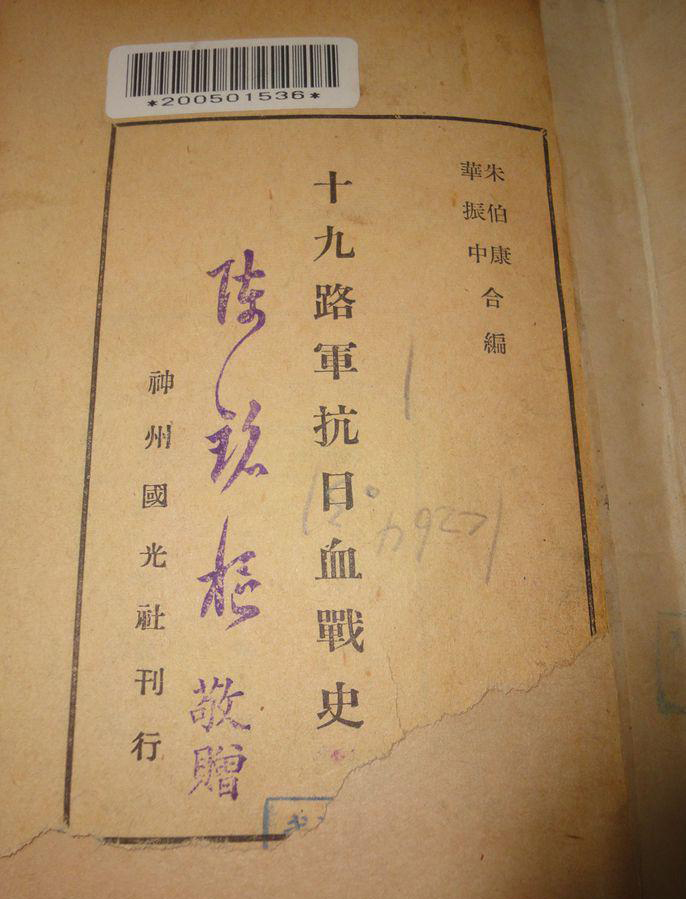 *200501536*
朱伯康
華振中
合編
十九路軍抗日血戰史
陳銘樞 敬贈
神州國光社刊行